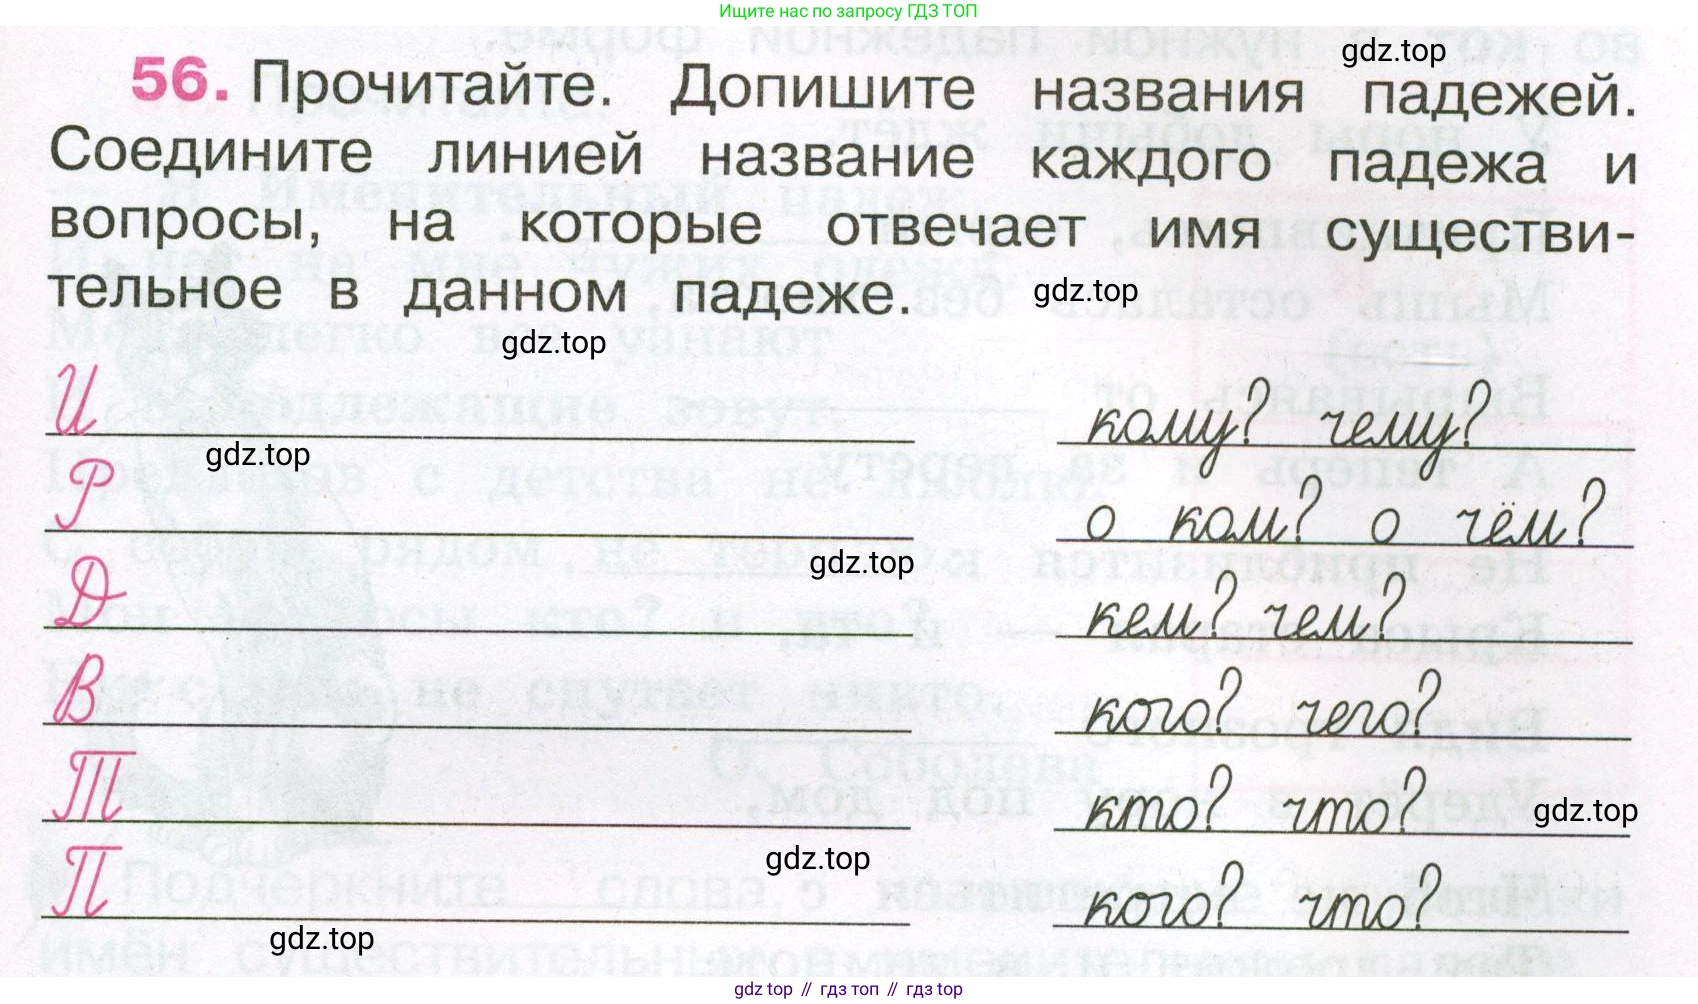 Ищите нас по запросу ГДЗ ТОП
gdz.top
56. Прочитайте. Допишите названия падежей.
Соедините линией название каждого падежа и
вопросы, на которые отвечает имя существи-
тельное в данном падеже.
gdz.top
gdz.top
И кому? чему?
gdz.top
Р о ком? о чём?
gdz.top
Д кем? чем?
В кого? чего?
Т кто? что?
gdz.top
gdz.top
П кого? что?
gdz.top
gdz top // гдз топ // гдз top